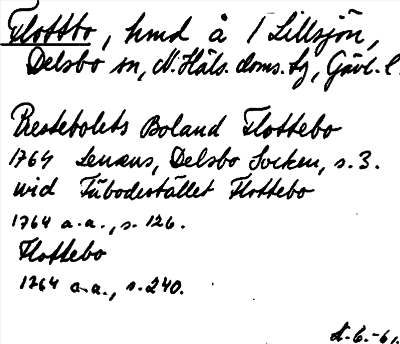 Flottbo, hmd å 1 Lillsjön,
Delsbo sn, N. Häls. doms. tg, Gävl. l.
Prestebolets Boland Flottebo
1764 Lenæus, Delsbo Socken, s. 3.
wid Fäbodestället Flottebo
1764 a.a., s. 126.
Flottebo
1764 a.a., s. 240.